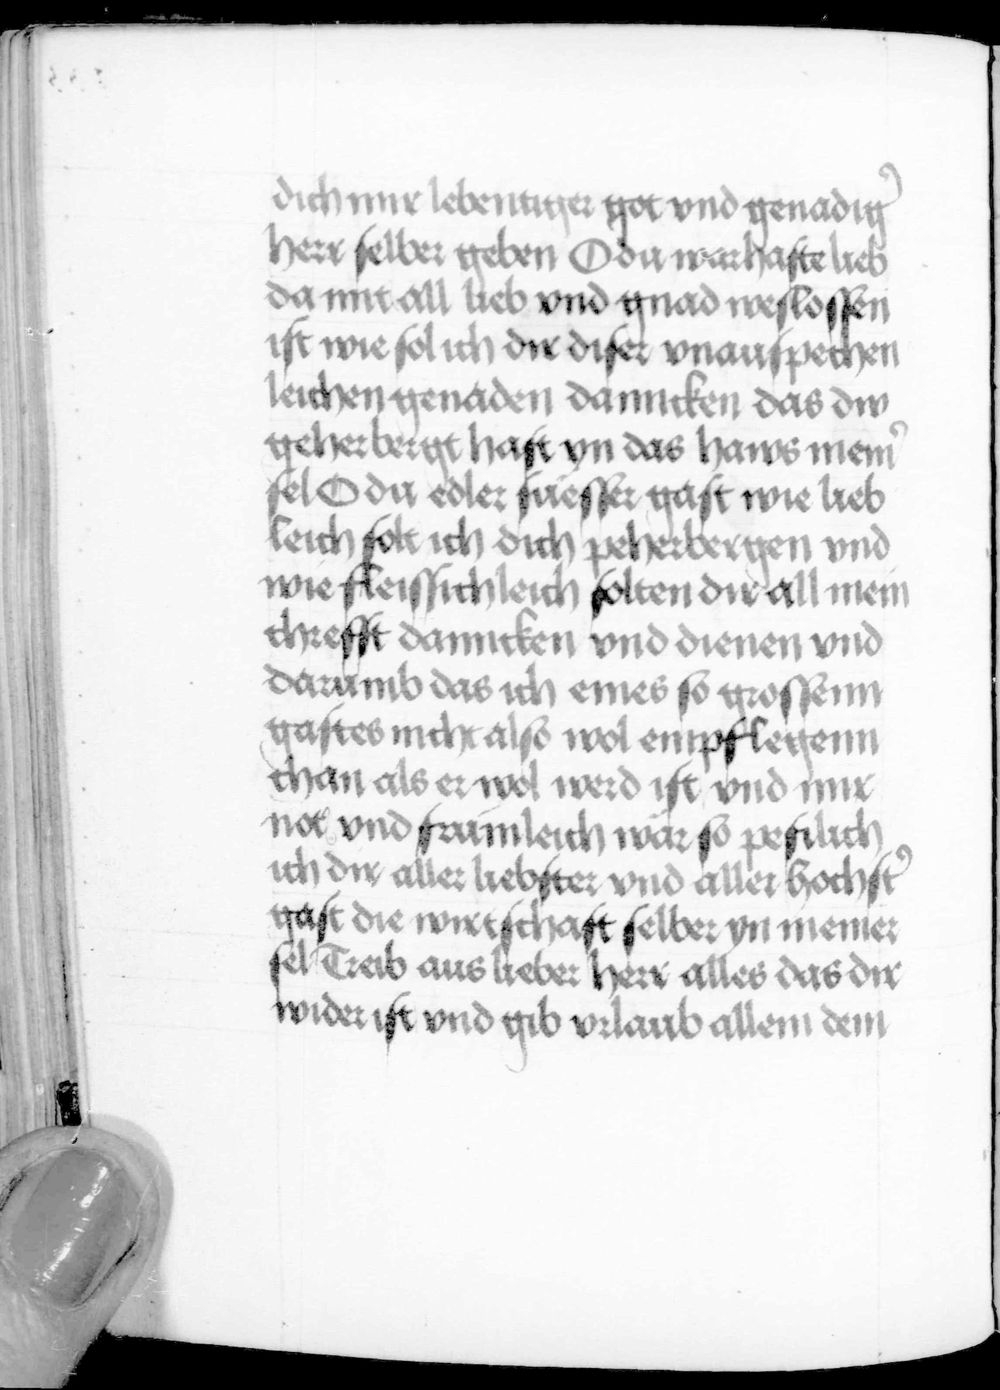 dich mir lebentiger got vnd genadig᾽
herr selber geben O du warhafte lieb
da mit all lieb vnd gnad weslossen
ist wie sol ich dir diser vnauspechen
leichen genaden danncken das dw
geherbergt hast yn das haws mein᾽
sel O du edler suesser gast wie lieb
leich solt ich dich peherbergen vnd
wie fleissichleich solten dir all mein
chrefft danncken vnd dienen vnd
darumb das ich eines so grossenn
gastes nicht also wol empflegenn
chan als er wol werd ist vnd mir
not vnd frumleich wär so pesilich
ich dir aller liebster vnd aller hochst᾽
gast die wirtschaft selber yn meiner
sel Treib aus lieber herr alles das dir
wider ist vnd gib vrlaub allem dem